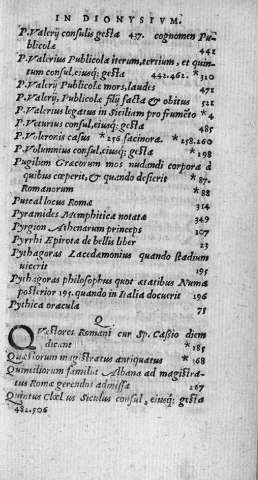 IN DIONYSIVM.
P. Valerij consulis gesta 437. cognomen Pu-
blicola 442
P. Valerius Publicola iterum, tertium, et quin-
tum consul, eiusq; gesta 442.462. *310
P. Valerij Publicolæ mors, laudes 471
P. Valerij, Publicolæ filij facta & obitus 521
P. Valerius legatus in Siciliam pro frumeto *4
P. Veturius consul, eiusq; gesta 485
P. Voleronis casus *256 facinora. *258.260
P. Volumnius consul, eiusq; gesta *198
Pugilum Græcorum mos nudandi corpora à
quibus cœperit, & quando desierit *87.
Romanorum *88
Puteal locus Romæ 314
Pyramides Memphiticæ notatæ 349
Pyrgion Athenarum princeps 107
Pyrrhi Epirotæ de bellis liber 23
Pythagoras Lacedæmonius quando stadium
uicerit 195
Pythagoras philosophus quot ætatibus Numa
posterior 195. quando in Italia docuerit 196
Pythica oracula 78
Q
QVæstores Romani cur Sp. Cassio diem
dicant *185
Quæstorum magistratus antiquatus *168
Quintiliorum familiæ Albana ad magistra-
tus Romæ gerendos admissa 267
Quintus Clœlius Siculus consul, eiusq; gesta
482.506